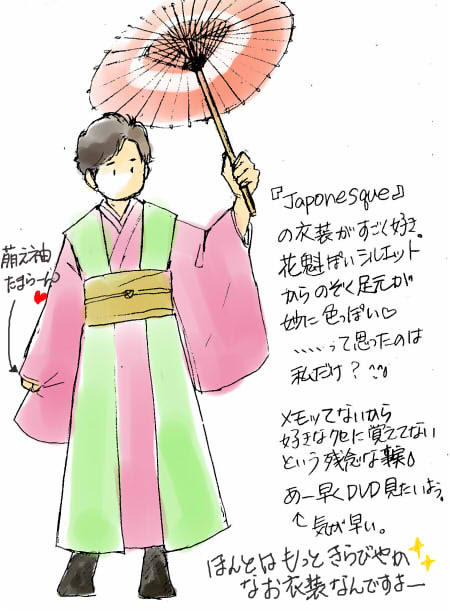 『Japonesque』
の衣装がすごく好き。
花魁ぽいシルエット
からのぞく足元が
妙に色っぽい♡
、、、、、って思ったのは
私だけ?
萌え袖
たまらーん
メモッてないから
好きなクセに覚えてない
という残念な事実
あー早くDVD見たいよぅ。
↑気が早い。
ほんとはもっときらびやか
なお衣装なんですよー